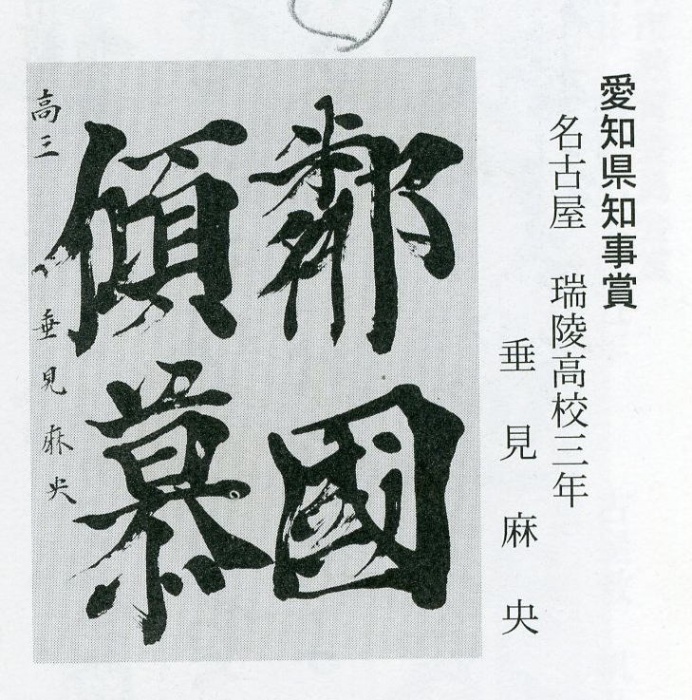 愛知県知事賞
名古屋 瑞陵高校三年
垂見麻央
鄰國
傾慕
高三 垂見麻央